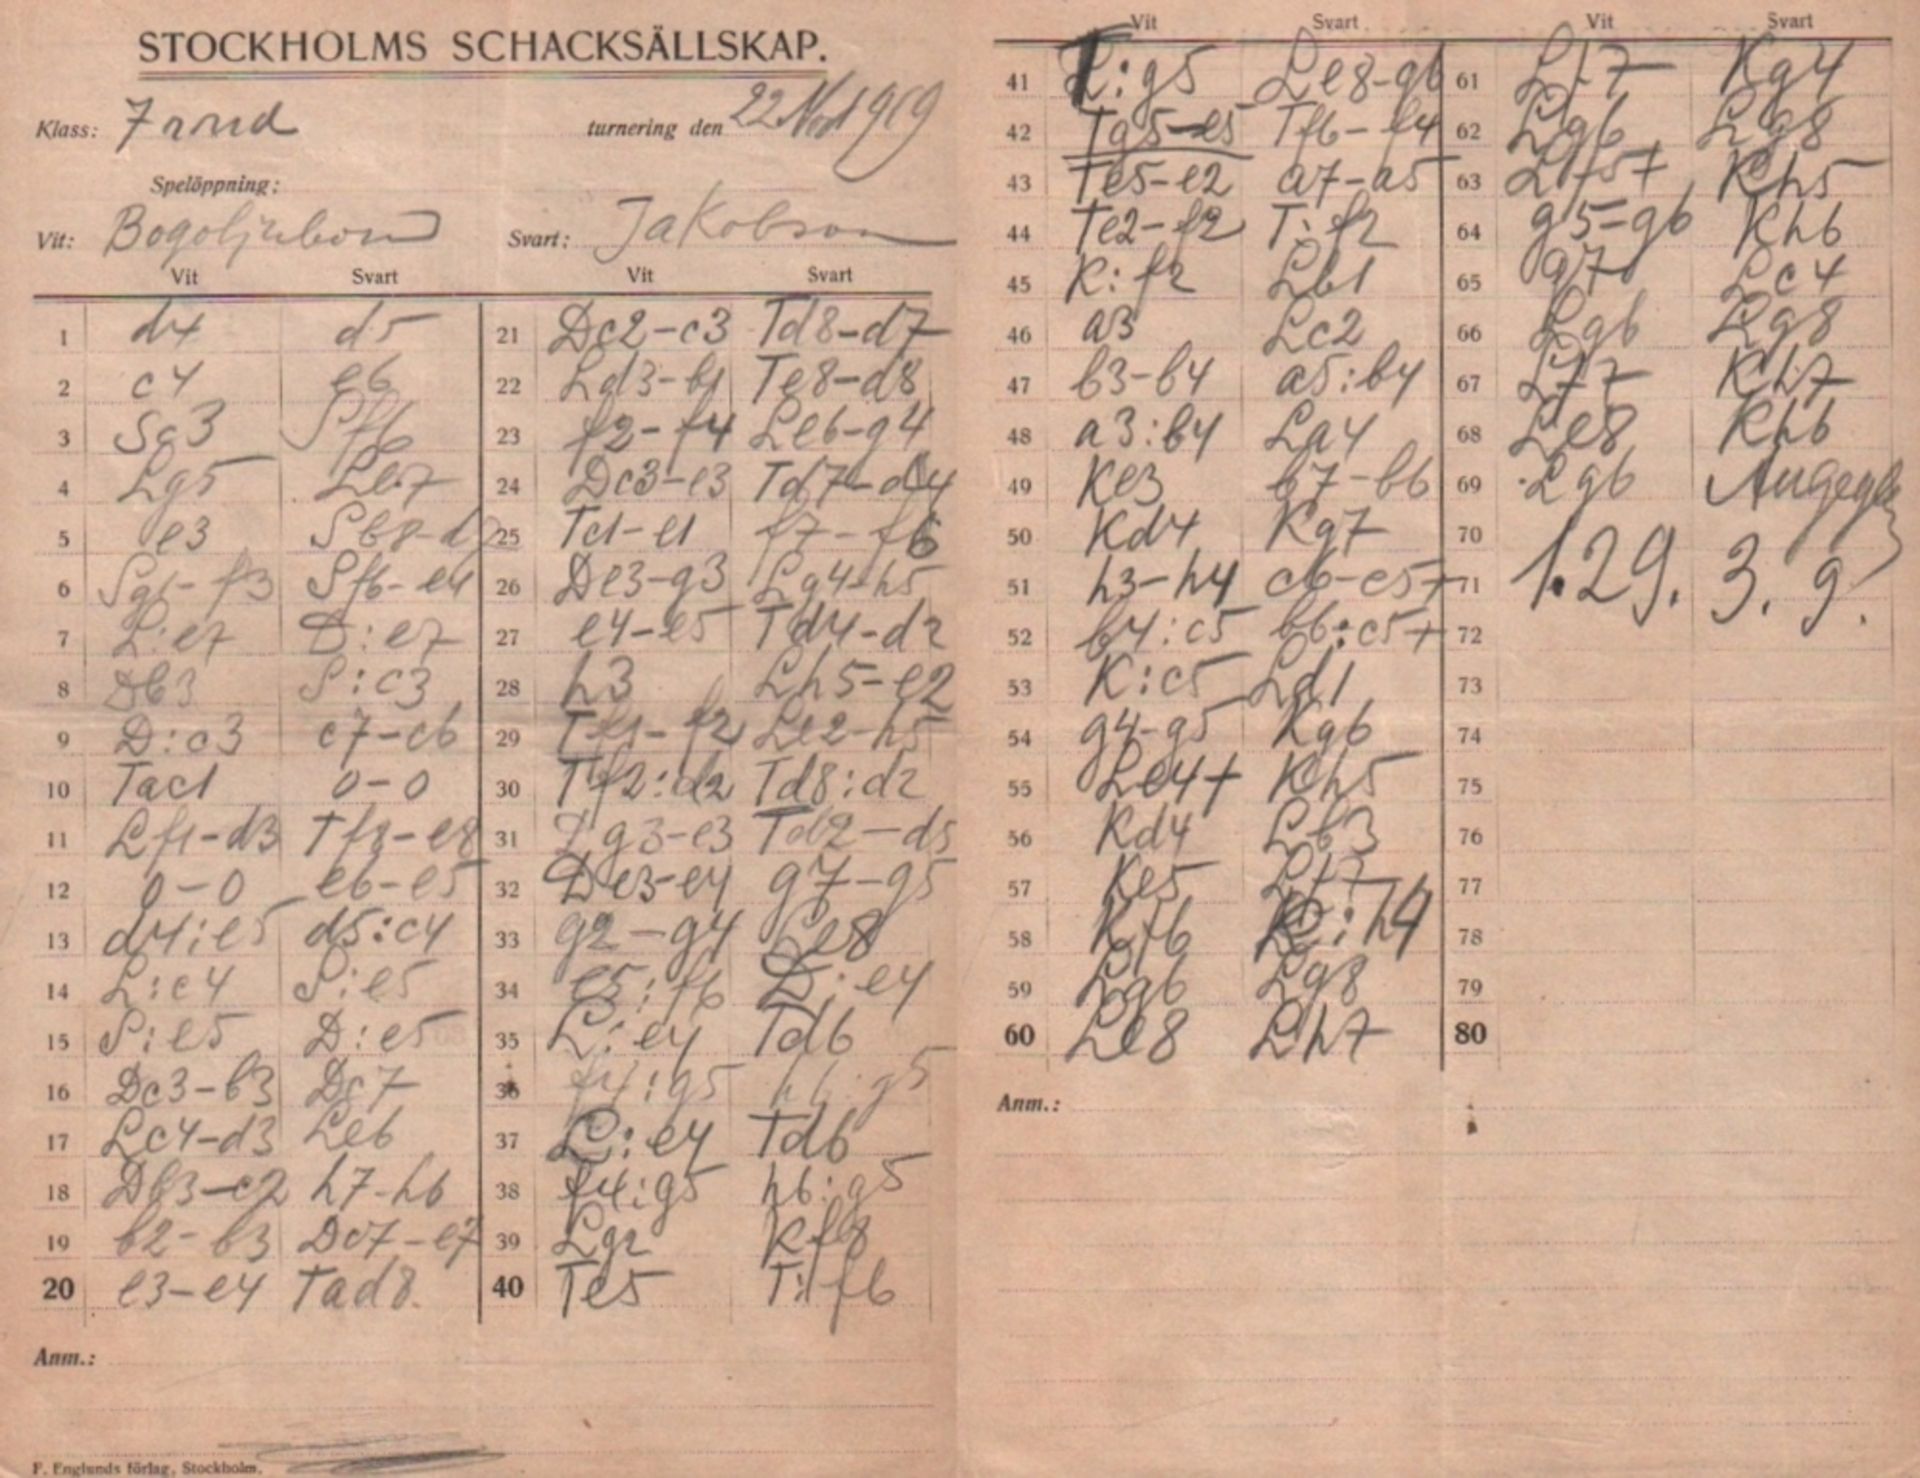 STOCKHOLMS SCHACKSÄLLSKAP.
Klass: 7 rund turnering den 22 Nov 1919
Spelöppning:
Vit: Bogoljubow Svart: Jakobson
Vit Svart Vit Svart
1 d4 d5
2 c4 e6
3 Sc3 Sf6
4 Lg5 Le7
5 e3 Sb8-d7
6 Sg1-f3 Sf6-e4
7 L:e7 D:e7
8 Db3 S:c3
9 D:c3 c7-c6
10 Tac1 0-0
11 Lf1-d3 Tf8-e8
12 0-0 e6-e5
13 d4:e5 d5:c4
14 L:c4 S:e5
15 S:e5 D:e5
16 Dc3-b3 Dc7
17 Lc4-d3 Le6
18 Db3-c2 h7-h6
19 b2-b3 Dc7-e7
20 e3-e4 Tad8
21 Dc2-c3 Td8-d7
22 Ld3-b1 Te8-d8
23 f2-f4 Le6-g4
24 Dc3-e3 Td7-d4
25 Tc1-e1 f7-f6
26 De3-g3 Lg4-h5
27 e4-e5 Td4-d2
28 h3 Lh5-e2
29 Tf1-f2 Le2-h5
30 Tf2:d2 Td8:d2
31 Dg3-e3 Td2-d5
32 De3-e4 g7-g5
33 g2-g4 Le8
34 e5:f6 D:e4
35 L:e4 Td6
36 f4:g5 h6:g5
37 L:e4 Td6
38 f4:g5 h6:g5
39 Lg2 Kf8
40 Te5 T:f6
Anm.:
F. Englunds förlag, Stockholm.
Vit Svart Vit Svart
41 T:g5 Le8-g6
42 Tg5-e5 Tf6-f4
43 Te5-e2 a7-a5
44 Te2-f2 T:f2
45 K:f2 Lb1
46 a3 Lc2
47 b3-b4 a5:b4
48 a3:b4 La4
49 Ke3 b7-b6
50 Kd4 Kg7
51 h3-h4 c6-c5+
52 b4:c5 b6:c5+
53 K:c5 Ld1
54 g4-g5 Kg6
55 Le4+ Kh5
56 Kd4 Lb3
57 Ke5 Lf7
58 Kf6 K:h4
59 Lg6 Lg8
60 Le8 Lh7
61 Lf7 Kg4
62 Lg6 Lg8
63 Lf5+ Kh5
64 g5-g6 Kh6
65 g7 Lc4
66 Lg6 Lg8
67 Lf7 Kh7
68 Le8 Kh6
69 Lg6
70 1.29. 3. 9.
71
72
73
74
75
76
77
78
79
80
Anm.: